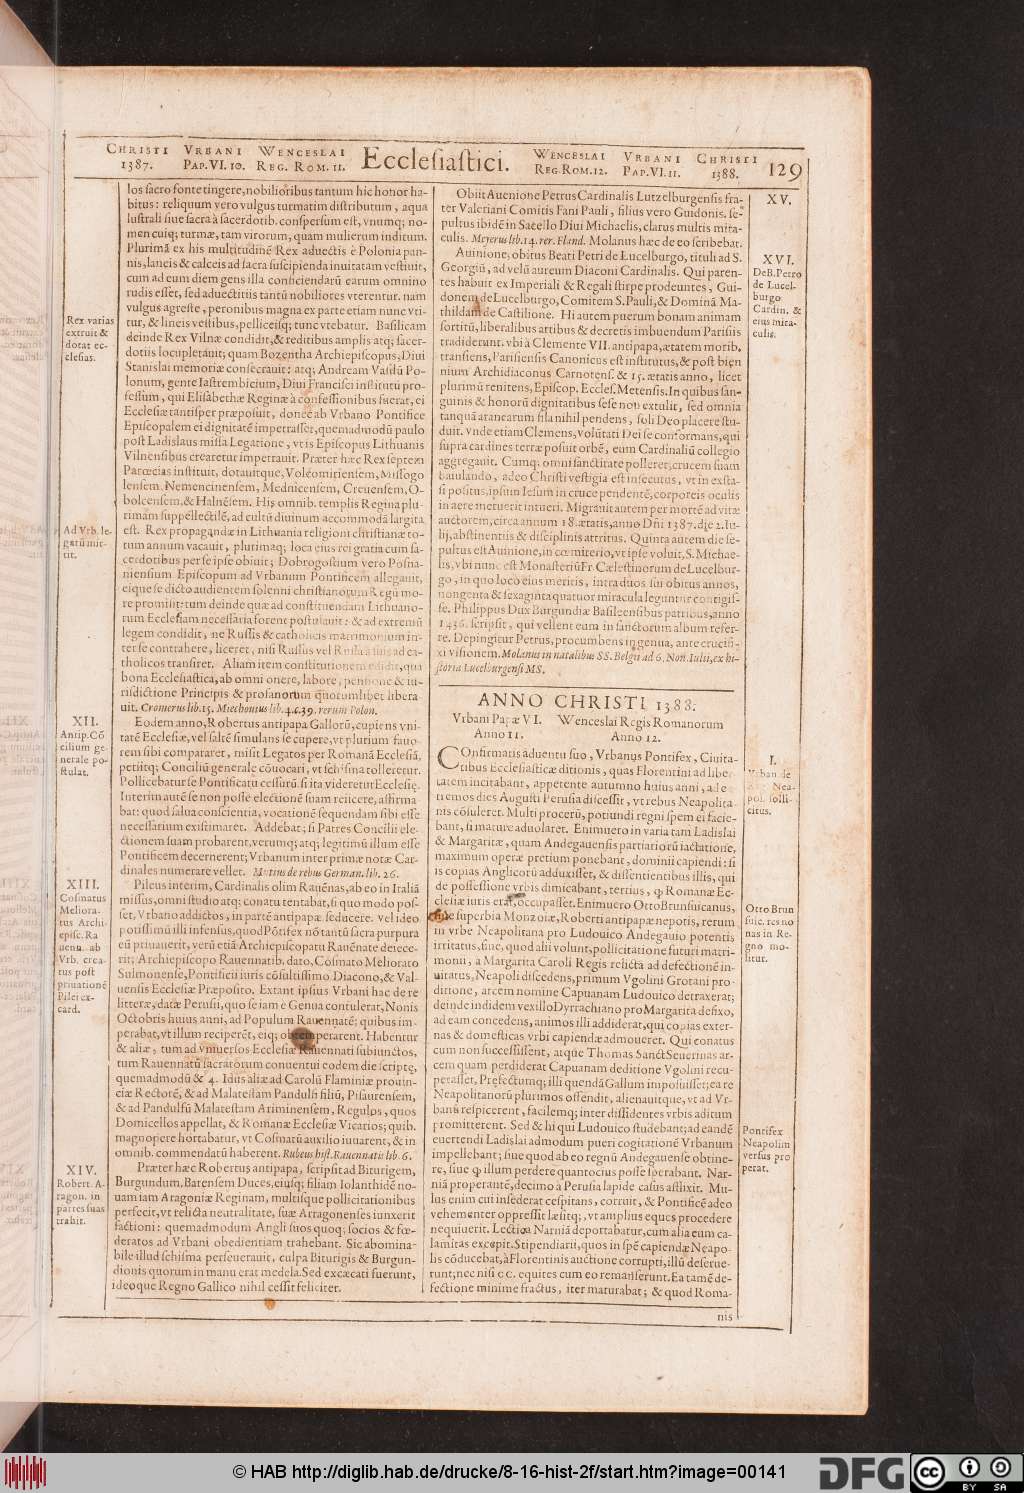 CHRISTI VRBANI WENCESLAI Ecclesiastici. WENCESLAI VRBANI CHRISTI
1387. PAP. VI. 10. REG. ROM. 11. REG. ROM. 12. PAP. VI. 11. 1388. 129
los sacro fonte tingere, nobilioribus tantum hic honor ha-
bitus: reliquum vero vulgus turmatim distributum, aqua
lustrali siue sacra à sacerdotib. conspersum est, vnumq; no-
men cuiq; turmæ, tam virorum, quam mulierum inditum.
Plurimā ex his multitudinē Rex aduectis è Polonia pan-
nis, laneis & calceis ad sacra suscipienda inuitatam vestiuit,
cum ad eum diem gens illa conficiendarū earum omnino
rudis esset, sed aduectitiis tantū nobiliores vterentur. nam
vulgus agreste, peronibus magna ex parte etiam nunc vti-
tur, & lineis vestibus, pelliceisq; tunc vtebatur. Basilicam
deinde Rex Vilnæ condidit, & reditibus amplis atq; sacer-
dotiis locupletauit; quam Bozentha Archiepiscopus, Diui
Stanislai memoriæ consecrauit: atq; Andream Vasilū Po-
lonum, gente Iastrembicium, Diui Francisci instituti pro-
fessum, qui Elisabethæ Reginæ à confessionibus fuerat, ei
Ecclesiæ tantisper præposuit, donec ab Vrbano Pontifice
Episcopalem ei dignitatē impetrasset, quemadmodū paulo
post Ladislaus missa Legatione, vt is Episcopus Lithuanis
Vilnensibus crearetur impetrauit. Præter hæc Rex septem
Parœcias instituit, dotauitque, Volcomiriensem, Missogo
lensem, Nemencinensem, Mednicensem, Creuensem, O-
bolcensem, & Halnēsem. His omnib. templis Regina plu-
rimam suppellectilē, ad cultū diuinum accommodā largita
est. Rex propagandæ in Lithuania religioni christianæ to-
tum annum vacauit, plurimaq; loca eius rei gratia cum sa-
cerdotibus per se ipse obiuit; Dobrogostium vero Posna-
niensium Episcopum ad Vrbanum Pontificem allegauit,
eique se dicto audientem solenni christianorum Regū mo-
re promisit: tum deinde quæ ad constituendam Lithuano-
rum Ecclesiam necessaria forent postulauit: & ad extremū
legem condidit, ne Russis & catholicis matrimonium in-
ter se contrahere, liceret, nisi Russus vel Russa à suis ad ca-
tholicos transiret. Aliam item constitutionem edidit, qua
bona Ecclesiastica, ab omni onere, labore, pensione & iu-
risdictione Principis & profanorum quorumlibet libera
uit. Cromerus lib. 15. Miechouius lib. 4. c. 39. rerum Polon.
Eodem anno, Robertus antipapa Gallorū, cupiens vni-
tatē Ecclesiæ, vel saltē simulans se cupere, vt plurium fauo-
rem sibi compararet, misit Legatos per Romanā Ecclesiā,
petiitq; Conciliū generale cōuocari, vt schisma tolleretur.
Pollicebatur se Pontificatu cessurū si ita videretur Ecclesię.
Interim autē se non posse electionē suam reiicere, affirma-
bat: quod salua conscientia, vocationē sequendam sibi esse
necessarium existimaret. Addebat; si Patres Concilii ele-
ctionem suam probarent, verumq; atq; legitimū illum esse
Pontificem decernerent; Vrbanum inter primæ notæ Car-
dinales numerare vellet. Mutius de rebus German. lib. 26.
Pileus interim, Cardinalis olim Rauēnas, ab eo in Italiā
missus, omni studio atq; conatu tentabat, si quo modo pos-
set, Vrbano addictos, in partē antipapæ seducere. vel ideo
potissimū illi infensus, quod Pōtifex nō tantū sacra purpura
eū priuauerit, verū etiā Archiepiscopatu Rauēnate deiece-
rit; Archiepiscopo Rauennatib. dato, Cosmato Meliorato
Sulmonense, Pontificii iuris cōsultissimo Diacono, & Val-
uensis Ecclesiæ Præposito. Extant ipsius Vrbani hac de re
litteræ, datæ Perusii, quo se iam è Genua contulerat, Nonis
Octobris huius anni, ad Populum Rauennatē: quibus im-
perabat, vt illum reciperēt, eiq; obtemperarent. Habentur
& aliæ, tum ad vniuersos Ecclesiæ Rauennati subiunctos,
tum Rauennatū sacratorum conuentui eodem die scriptę,
quemadmodū & 4. Idus aliæ ad Carolū Flaminiæ prouin-
ciæ Rectorē, & ad Malatestam Pandulfi filiū, Pisaurensem,
& ad Pandulfū Malatestam Ariminensem, Regulos, quos
Domicellos appellat, & Romanæ Ecclesiæ Vicarios; quib.
magnopere hortabatur, vt Cosmatū auxilio iuuarent, & in
omnib. commendatū haberent. Rubeus hist. Rauennatis lib. 6.
Præter hæc Robertus antipapa, scripsit ad Biturigem,
Burgundum, Barensem Duces, eiusq; filiam Iolanthidē no-
uam iam Aragoniæ Reginam, multisque pollicitationibus
perfecit, vt relicta neutralitate, suæ Arragonenses iunxerit
factioni: quemadmodum Angli suos quoq; socios & fœ-
deratos ad Vrbani obedientiam trahebant. Sic abomina-
bile illud schisma perseuerauit, culpa Biturigis & Burgun-
dionis quorum in manu erat medela. Sed excæcati fuerunt,
ideoque Regno Gallico nihil cessit feliciter.
Rex varias
extruit &
dotat ec-
clesias.
Ad Vrb. le-
gatū mit-
tit.
XII.
Antip. Cō
cilium ge-
nerale po-
stulat.
XIII.
Cosmatus
Meliora-
tus Archi-
episc. Ra
uenn. ab
Vrb. crea-
tus post
priuationē
Pilei ex-
card.
XIV.
Robert. A-
ragon. in
partes suas
trahit.
Obiit Auenione Petrus Cardinalis Lutzelburgensis fra-
ter Valeriani Comitis Fani Pauli, filius vero Guidonis. se-
pultus ibidē in Sacello Diui Michaelis, clarus multis mira-
culis. Meyerus lib. 14. rer. Fland. Molanus hæc de eo scribebat.
Auinione, obitus Beati Petri de Lucelburgo, tituli ad S.
Georgiū, ad velū aureum Diaconi Cardinalis. Qui paren-
tes habuit ex Imperiali & Regali stirpe prodeuntes, Gui-
donem de Lucelburgo, Comitem S. Pauli, & Dominā Ma-
thildam de Castilione. Hi autem puerum bonam animam
sortitū, liberalibus artibus & decretis imbuendum Parisiis
tradiderunt. vbi à Clemente VII. antipapa, ætatem morib.
transiens, Parisiensis Canonicus est institutus, & post bien
nium Archidiaconus Carnotens. & 15. ætatis anno, licet
plurimū renitens, Episcop. Eccles. Metensis. In quibus san-
guinis & honorū dignitatibus sese non extulit, sed omnia
tanquā aranearum fila nihil pendens, soli Deo placere stu-
duit. vnde etiam Clemens, volūtati Dei se conformans, qui
supra cardines terræ posuit orbē, eum Cardinaliū collegio
aggregauit. Cumq; omni sanctitate polleret, crucem suam
baiulando, adeo Christi vestigia est insecutus, vt in exsta-
si positus, ipsum Iesum in cruce pendentē, corporeis oculis
in aere meruerit intueri. Migrauit autem per mortē ad vitæ
auctorem, circa annum 18. ætatis, anno Dñi 1387. die 2. Iu-
lij, abstinentiis & disciplinis attritus. Quinta autem die se-
pultus est Auinione, in cœmiterio, vt ipse voluit, S. Michae-
lis, vbi nunc est Monasteriū Fr. Cælestinorum de Lucelbur-
go, in quo loco eius meritis, intra duos sui obitus annos,
nongenta & sexaginta quatuor miracula leguntur contigis-
se. Philippus Dux Burgundiæ Basileensibus patribus, anno
1436. scripsit, qui vellent eum in sanctorum album refer-
re. Depingitur Petrus, procumbens in genua, ante crucifi-
xi visionem. Molanus in natalibus SS. Belgii ad 6. Non. Iulii, ex hi-
storia Lucelburgensi MS.
ANNO CHRISTI 1388.
Vrbani Papæ VI. Wenceslai Regis Romanorum
Anno 11. Anno 12.
COnfirmatis aduentu suo, Vrbanus Pontifex, Ciuita-
tibus Ecclesiasticæ ditionis, quas Florentini ad liber-
tatem incitabant, appetente autumno huius anni, ad e
tremos dies Augusti Perusia discessit, vt rebus Neapolita-
nis cōsuleret. Multi procerū, potiundi regni spem ei facie-
bant, si mature aduolaret. Enimuero in varia tam Ladislai
& Margaritæ, quam Andegauensis partiatiorū iactatione,
maximum operæ pretium ponebant, dominii capiendi: si
is copias Anglicorū adduxisset, & dissentientibus illis, qui
de possessione vrbis dimicabant, tertius, q Romanæ Ec-
clesiæ iuris erat, occupasset. Enimuero Otto Brunsuicanus,
siue superbia Monzoiæ, Roberti antipapæ nepotis, rerum
in vrbe Neapolitana pro Ludouico Andegauio potentis
irritatus, siue, quod alii volunt, pollicitatione futuri matri-
monii, à Margarita Caroli Regis relicta ad defectionē in-
uitatus, Neapoli discedens, primum Vgolini Grotani pro
ditione, arcem nomine Capuanam Ludouico detraxerat;
deinde inibidem vexillo Dyrrachiano pro Margarita defixo,
ad eam concedens, animos illi addiderat, qui copias exter-
nas & domesticas vrbi capiendæ admoueret. Qui conatus
cum non successissent, atque Thomas Sanct Seuerinus ar-
cem quam perdiderat Capuanam deditione Vgolini recu-
perasset, Prefectumq; illi quendā Gallum imposuisset; ea re
Neapolitanorū plurimos offendit, alienauitque, vt ad Vr-
banū respicerent, facilemq; inter dissidentes vrbis aditum
promitterent. Sed & hi qui Ludouico studebant; ad eandē
euertendi Ladislai admodum pueri cogitationē Vrbanum
impellebant; siue quod ab eo regnū Andegauense obtine-
re, siue q illum perdere quantocius posse sperabant. Nar-
niā properante, decimo à Perusia lapide casus afflixit. Mu-
lus enim cui insederat cespitans, corruit, & Pontificē adeo
vehementer oppressit læsitq;, vt amplius eques procedere
nequiuerit. Lectica Narniā deportabatur, cum alia eum ca-
lamitas excepit. Stipendiarii, quos in spē capiendæ Neapo-
lis cōducebat, à Florentinis auctione corrupti, illū deserue-
runt; nec nisi CC. equites cum eo remanserunt. Ea tamē de-
fectione minime fractus, iter maturabat; & quod Roma-
nis
XV.
XVI.
De B. Petro
de Lucel-
burgo
Cardin. &
eius mira-
culis.
I.
Vrban. de
Nea-
pol. solli-
citus.
Otto Brun
suic. res no
uas in Re-
gno mo-
litur.
Pontifex
Neapolim
versus pro
perat.
© HAB http://diglib.hab.de/drucke/8-16-hist-2f/start.htm?image=00141
DFG
CC BY SA